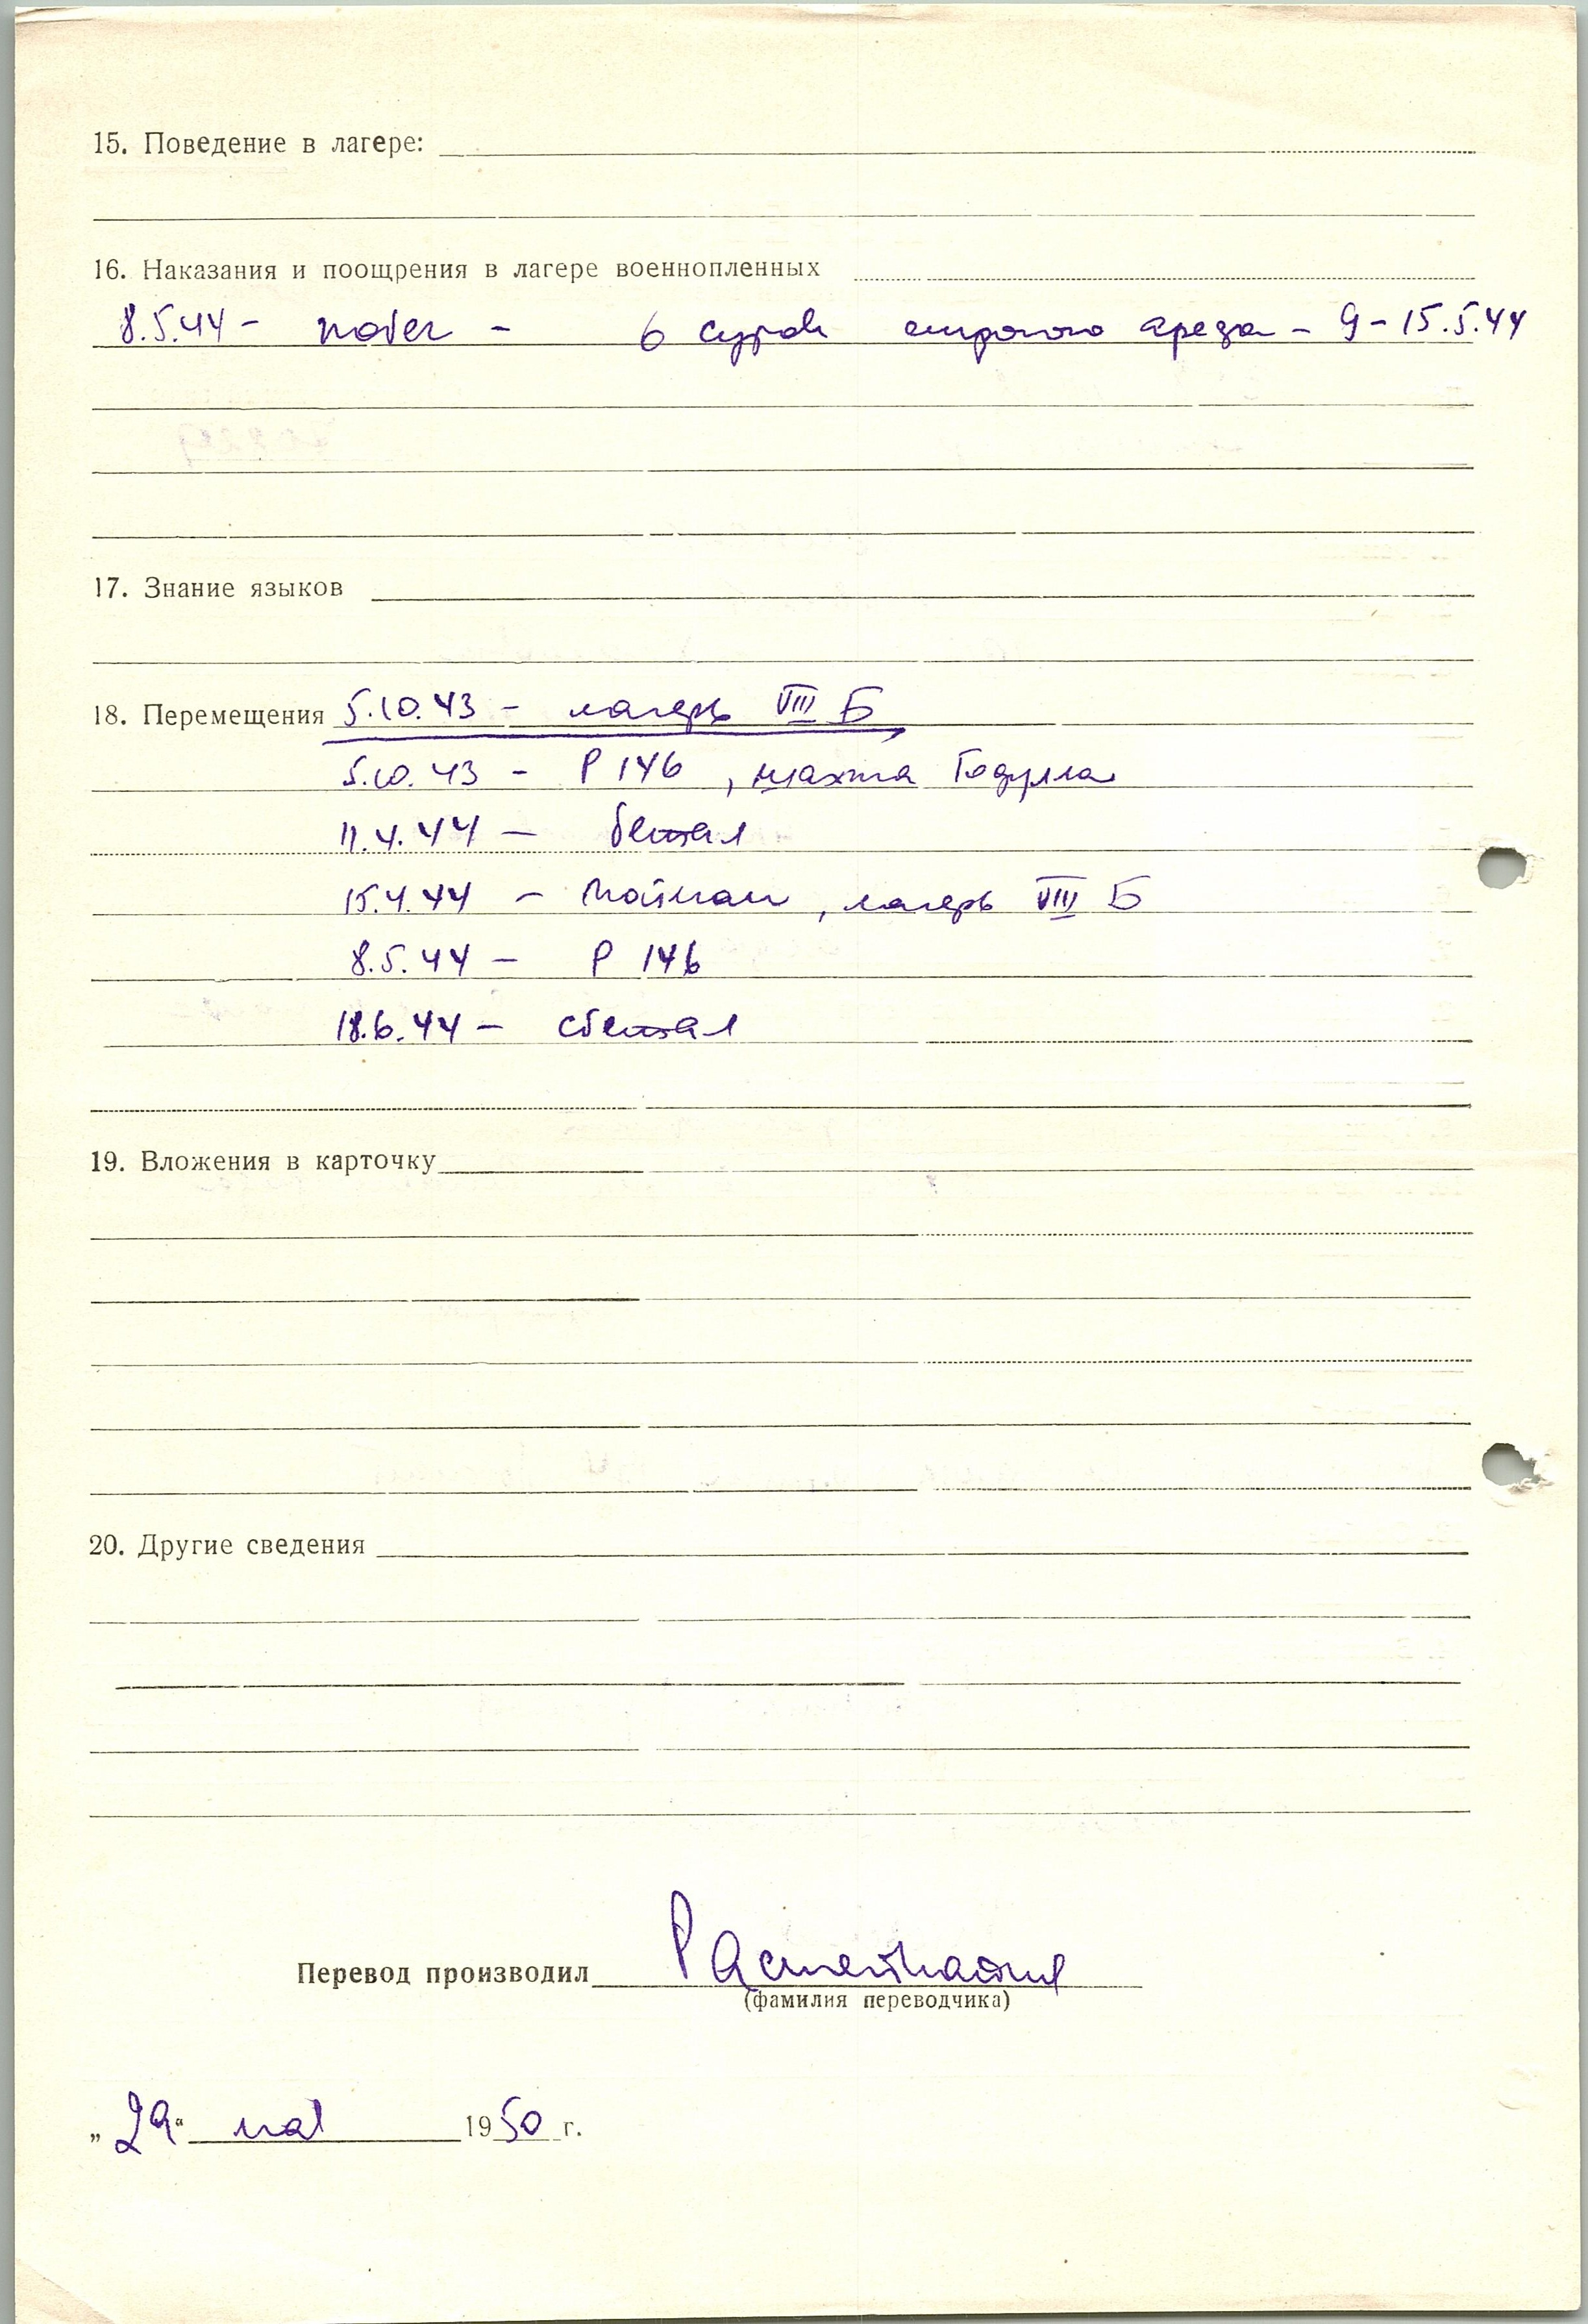 15. Поведение в лагере:
16. Наказания и поощрения в лагере военнопленных
8.5.44 – побег – 6 суток строгого ареста – 9 – 15.5.44
17. Знание языков
18. Перемещения 5.10.43 – лагерь VIII Б
5.10.43 – Р 146, шахта Годулла
11.4.44 – бежал
15.4.44 – пойман, лагерь VIII Б
8.5.44 – Р 146
18.6.44 – сбежал
19. Вложения в карточку
20. Другие сведения
Перевод производил
(фамилия переводчика)
„29“ мая 1950 г.